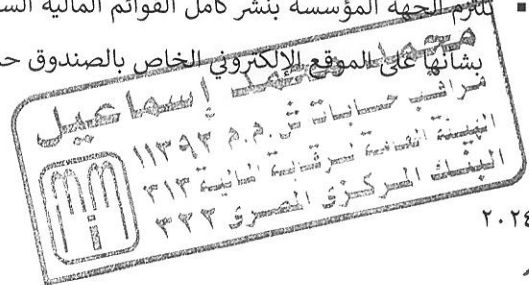 ▪ تلتزم الجهة المؤسسة بنشر كامل القوائم المالية
بشأنها على الموقع الإلكتروني الخاص بالصندوق
إسماعيل
مراقب حسابات س.م.م ١١٣٩٣
الهيئة العامة للرقابة المالية ٣١٣
البنك المركزي المصري ٣٢٢
٢٠٢٤